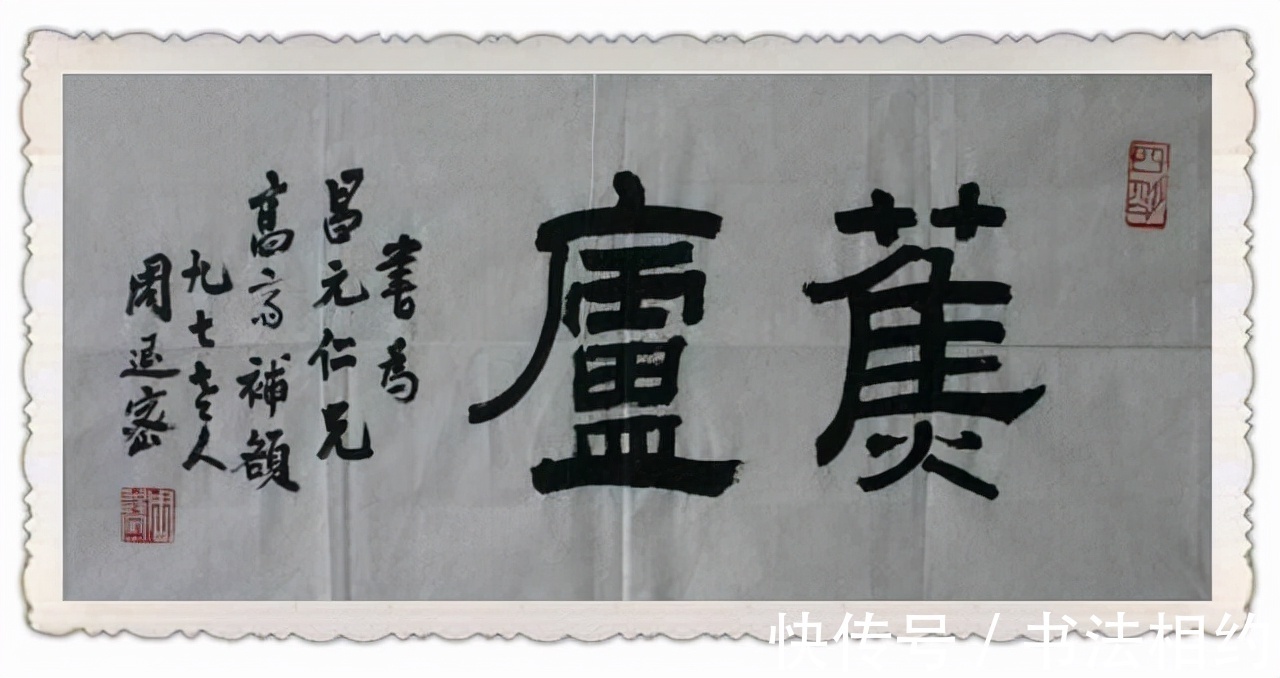 蕉廬
書為
昌元仁兄
高齋補額
九七老人
周退密
快传号 / 书法相约